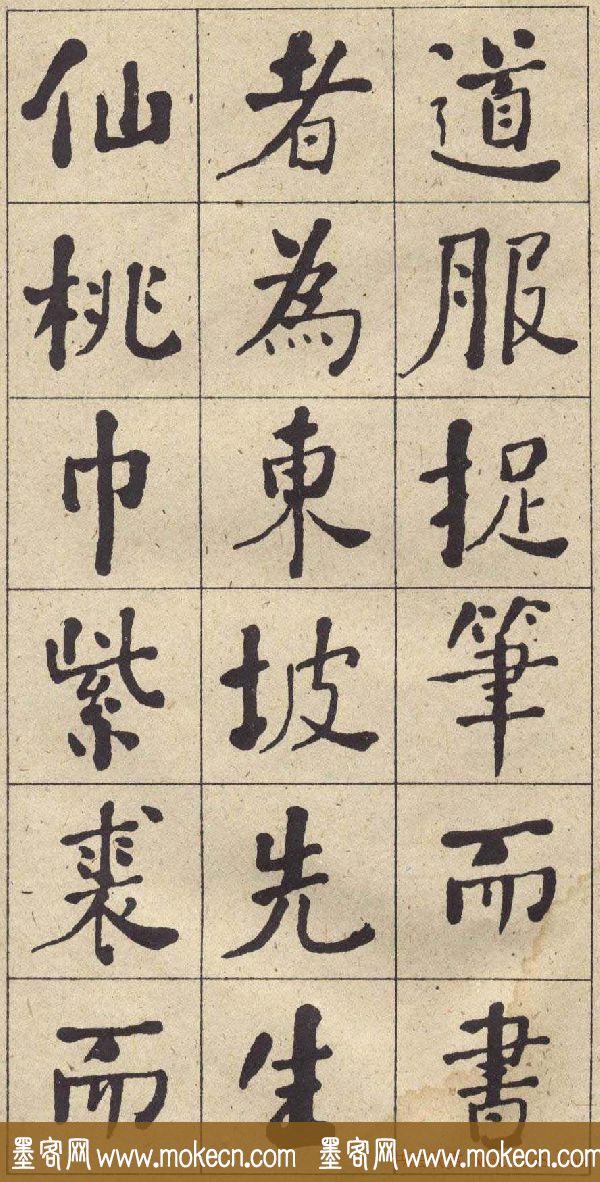 道服捉筆而書
者為東坡先生
仙桃巾紫裘而
墨客网 www.mokecn.com 墨客网 www.mokecn.com